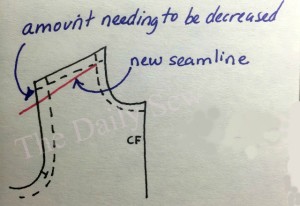 amount needing to be decreased
new seamline
The Daily Se
CF